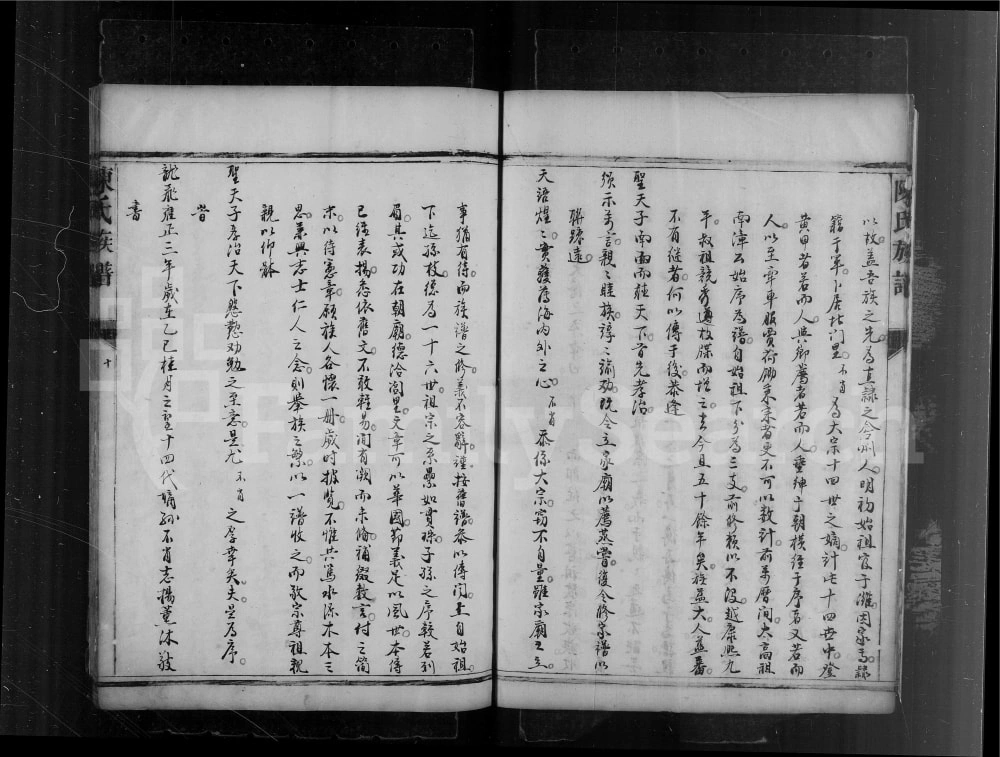 陳氏族譜
以故蓋吾族之先為直隸之合州人明初始祖官于濰因家焉隸
籍于軍卜居北門里不肖為大宗十四世之嫡計此十四世中登
黃甲者若而人與鄉薦者若而人垂紳于朝橫經于序者又若而
人以至牽車服賈荷鋤來者更不可以數計前萬曆間太高祖
南漳公始序為譜自始祖下分為三支前修賴以不沒越康熙九
年叔祖競秀遵故牒而增之去今且五十餘年矣族益大人益蕃
不有繼者何以傳于後恭逢
聖天子南面而聽天下首先孝治
頒示萬言親之睦族諄諄誥勸既令立家廟以薦蒸嘗復令修宗譜以
聯疎遠
天語煌煌實獲薄海內外之心不肖忝係大宗竊不自量雖家廟工
事猶有待而族譜之修義不容辭謹按舊譜參以傳聞上自始祖
下迄孫枝總為一十六世祖宗之系纍如貫珠子孫之序較若列
眉其或功在朝廟德洽閭里文章可以華國節義足以風世本傳
已經表揚悉依舊文不敢輕易間有潮而未備補綴數言付之簡
末以待憲章願族人各懷一冊歲時披覽不惟共篤水源木本之
思兼興志士仁人之念則舉族之繁以一譜收之而敬宗尊祖親
親以仰酬
聖天子孝治天下懇懃勸勉之至意是尤不肖之厚幸矣夫是為序
昔
龍飛雍正三年歲在乙巳桂月之望十四代嫡孫不肖志揚薰沐敬
書
陳氏族譜
十
FamilySearch